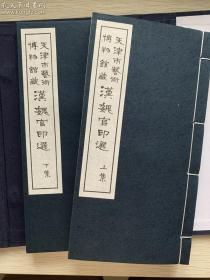 天津市藝術
博物館藏
漢魏官印選
上集
天津市藝術
博物館藏
漢魏官印選
下集